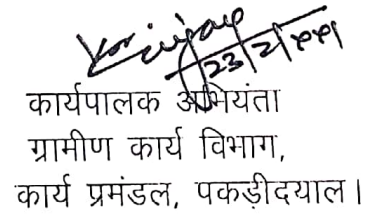 23/2/
कार्यपालक अभियंता
ग्रामीण कार्य विभाग,
कार्य प्रमंडल, पकड़ीदयाल।